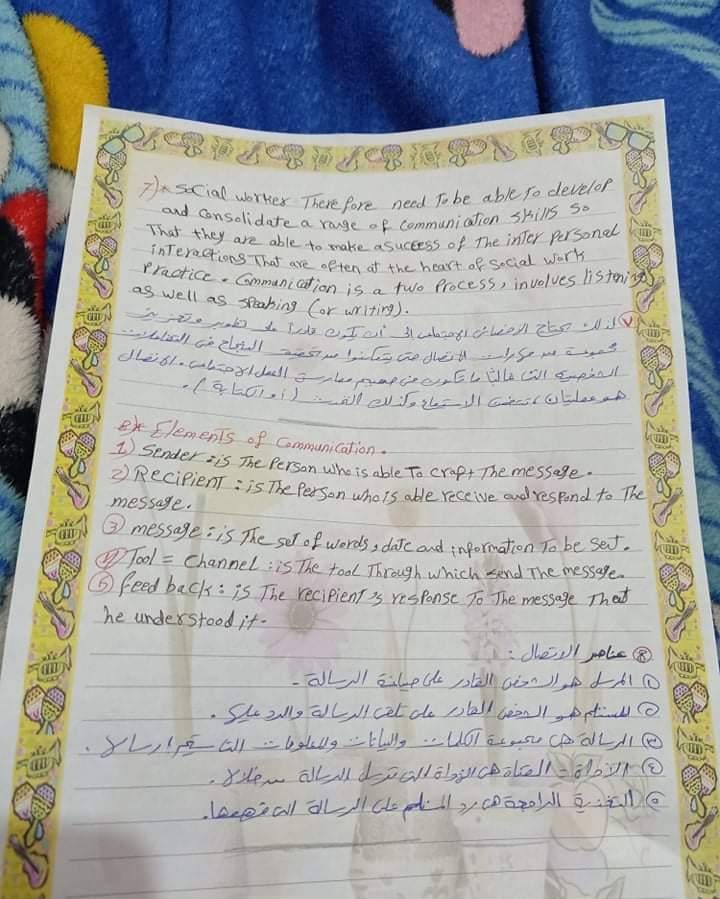 7)* Social worker Therefore need To be able To develop
and consolidate a range of communication skills so
That they are able to make a success of The inter personal
interactions That are often at the heart of social work
Practice. Communication is a two Process, involves listening
as well as speaking (or writing).
٧ لذلك يحتاج الاخصائي الاجتماعي الى أن يكون قادراً على تطوير وتعزيز
مجموعة من مهارات الاتصال حتى يتمكنوا من تحقيق النجاح في التفاعلات
الشخصية التي غالبًا ما تكون في صميم ممارسة العمل الاجتماعي. الاتصال
هو عمليتان، تتضمن الاستماع وكذلك التحدث (أو الكتابة).
8)* Elements of Communication.
1) Sender: is The Person who is able To craft The message.
2) Recipient: is The Person who is able receive and respond to The
message.
3 message: is The set of words, date and information To be sent.
4) Tool = channel: is The tool Through which send The message.
5 feed back: is The recipient's response To The message That
he understood it.
٨ عناصر الاتصال:
١ المرسل هو الشخص القادر على صياغة الرسالة.
٢ المستلم هو الشخص القادر على تلقي الرسالة والرد عليها.
٣ الرسالة هي مجموعة الكلمات والبيانات والمعلومات التي سيتم ارسالها.
٤ الأداة = القناة هي الأداة التي ترسل الرسالة من خلالها.
٥ التغذية الراجعة هي رد المستلم على الرسالة التي فهمها.